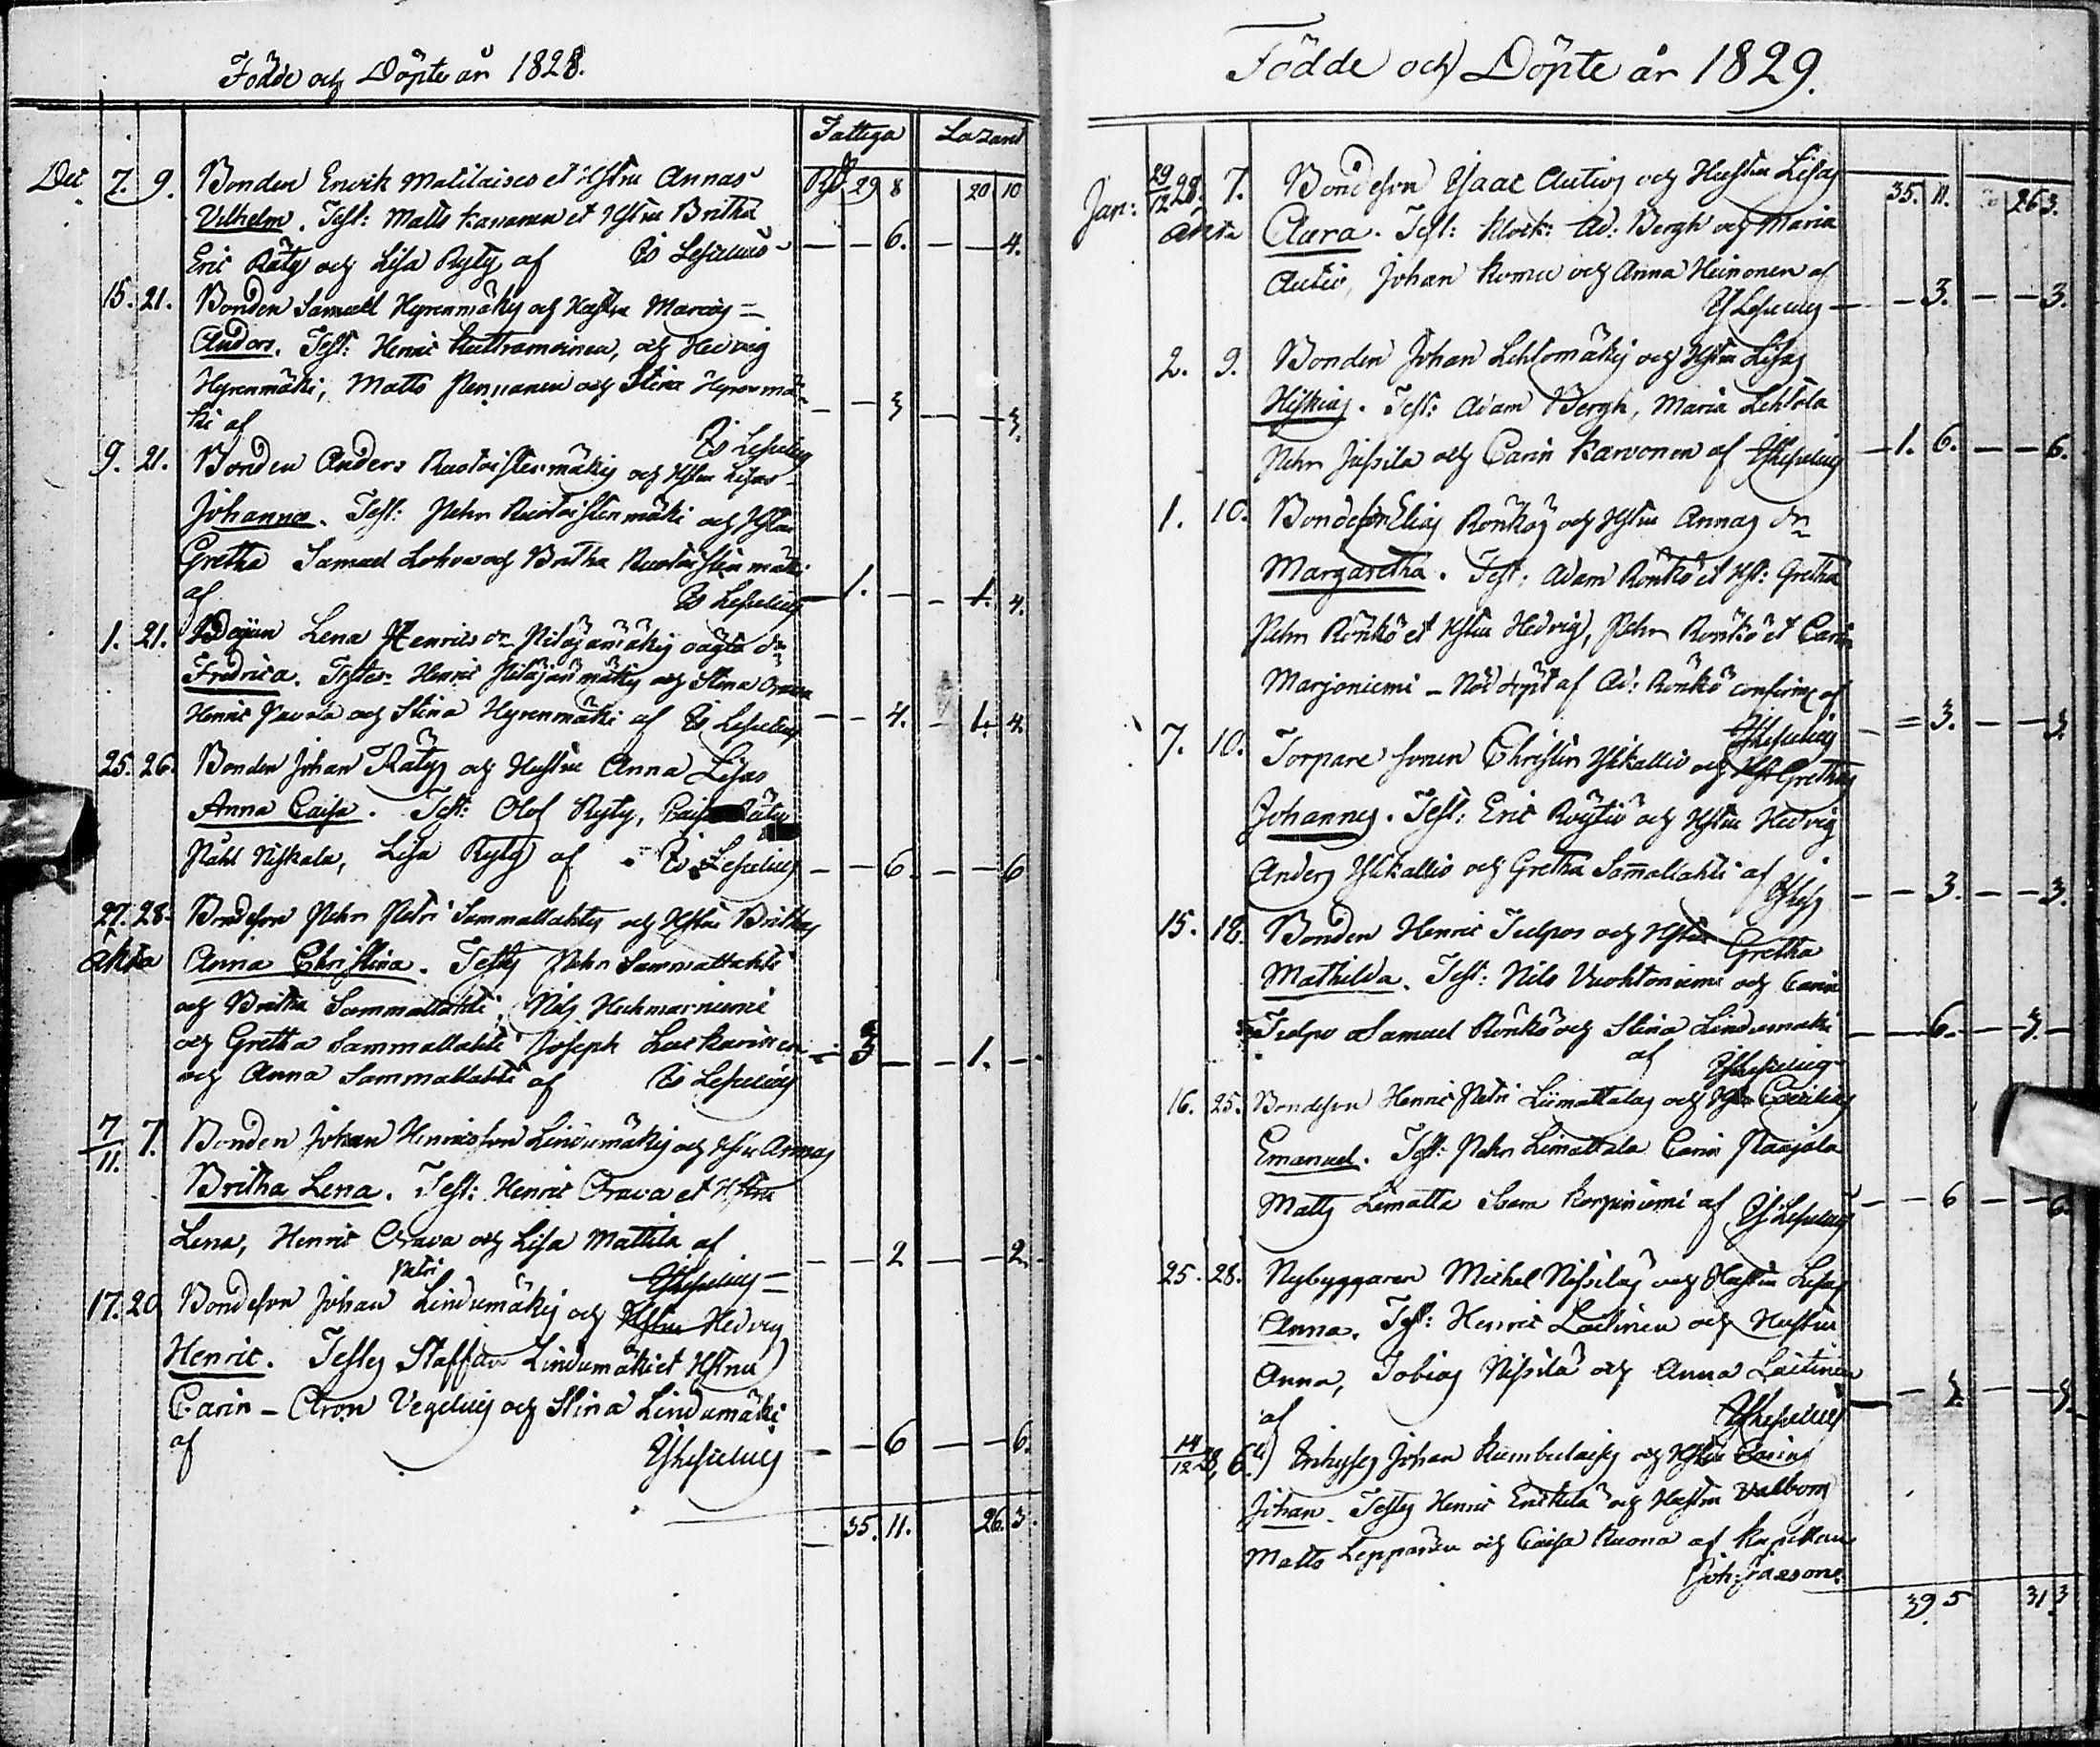 Födde och Döpte år 1828.
Fattiga Lazaret
Dec 7. 9. Bonden Matilaises et Hstru Annas
29 8 20 10
Vilhelm. Test: Matts Kananen et Hstru Britha
Eric Räty och Lisa Ryty af Is Lesselius — — 6. — — 4.
15. 21. Bonden Samuel Hyrenmäkis och Hustru
Anders. Test: Henric och Hedvig
Hyrenmäki, Matts Pennanen och Stina Hyrenmä-
ki af Is Lesselius — — 3 — — 3.
9. 21. Bonden Anders Ruotoistenmäkis och Hstru Lisas
Johannes. Test: Pehr Ruotoistenmäki och Hstru
Gretha Samuel Lohva och Britha Ruotoistenmäki
af Is Lesselius — 1. — — 1. 4.
1. 21. Lena Henrics dr Pitäjämäkis oägta dr
Fredrica. Testes Henric Pitäjänmäki och Stina Orava
Henric Pavola och Stina Hyrenmäki af Is Lesselius — — 4. — 1. 4.
25. 26. Bonden Johan Rätys och Hustru Anna Lisas
Anna Caisa. Test: Olof Ryty, Caisa Räty
Påhl Niskala, Lisa Ryty af Is Lesselius — — 6. — — 6
27. 28. Bondeson Pehr Petri Sammallahtis och Hstru Brithas
Anna Christina. Testes Pehr Sammallahti
och Britha Sammallahti, Nils Hechmarniemi
och Gretha Sammallahti Joseph Laukarinen — 3 — — 1. —
och Anna Sammallahti af Is Lesselius
7/11. 7. Bonden Johan Henricsson Lindumäkis och Hstru Annas
Britha Lena. Test: Henric Orava et Hstru
Lena, Henric Orava och Lisa Mattila af — — 2 — — 2.
Petri Is Lesselius
17. 20 Bondeson Johan Lindumäkis och Hstru Hedvig
Henric. Testes Staffan Lindumäki et Hstru
Carin — Aron Vegelius och Stina Lindumäki
af Is Lesselius — — 6 — — 6.
35. 11. 26. 3.
Födde och Döpte år 1829.
Jan: 29/12 28. 7. Bondeson Isaac Autios och Hustru Lisas 35. 11. 26 3.
Clara. Test: Klock: Ad: Bergh och Maria
Autio, Johan Komu och Anna Heinonen af
Is Lesselius — — 3. — — 3.
2. 9. Bonden Johan Lehtomäkis och Hstru Lisas
Hiskias. Test: Adam Bergh, Maria Lehtola
Pehr Jussila och Carin Karvonen af Is Lesselius — 1. 6. — — 6.
1. 10. Bondeson Elias Rönkös och Hstru Annas dr
Margaretha. Test: Adam Rönkö et Hst: Gretha
Pehr Rönkö et Hstru Hedvig, Pehr Rönkö et Carin
Marjoniemi — Nöddöpt af Ad: Rönkö confirm: af
Is Lesselius — 3. — — 3.
7. 10. Torpare sonen Christer Ylikallio och Hst Grethas
Johannes. Test: Eric Röytiö och Hstru Hedvig
Anders Ylikallio och Gretha Samallahti af — — 3. — — 3.
15. 18. Bonden Henric Tulpos och Hstru Gretha
Mathilda. Test: Nils Vuohtoniemi och Carin
Tulpo Samuel Rönkö och Stina Lindumäki — — 6. — 3. —
af Is Lesselius
16. 25. Bondeson Henric Petri Liimattalas och Hst Cecilias
Emanuel. Test: Pehr Limattala Carin Paajala
Matts Limatta Korpiniemi af Is Lesselius — — 6 — — 6.
25. 28. Nybyggaren Michel Nissiläs och Hustru Lisas
Anna. Test: Henric Laitinen och Hustru
Anna, Tobias Nissilä och Anna Laitinen
af Is Lesselius
14/12 28, 6 Inhyses Johan Kumbulaises och Hstru Carins
Johan. Testes Henric Enckelä och Hustru Valborg
Matts Leppänen och Caisa Kuona af Kapellan
Joh: 
39. 5 31. 3